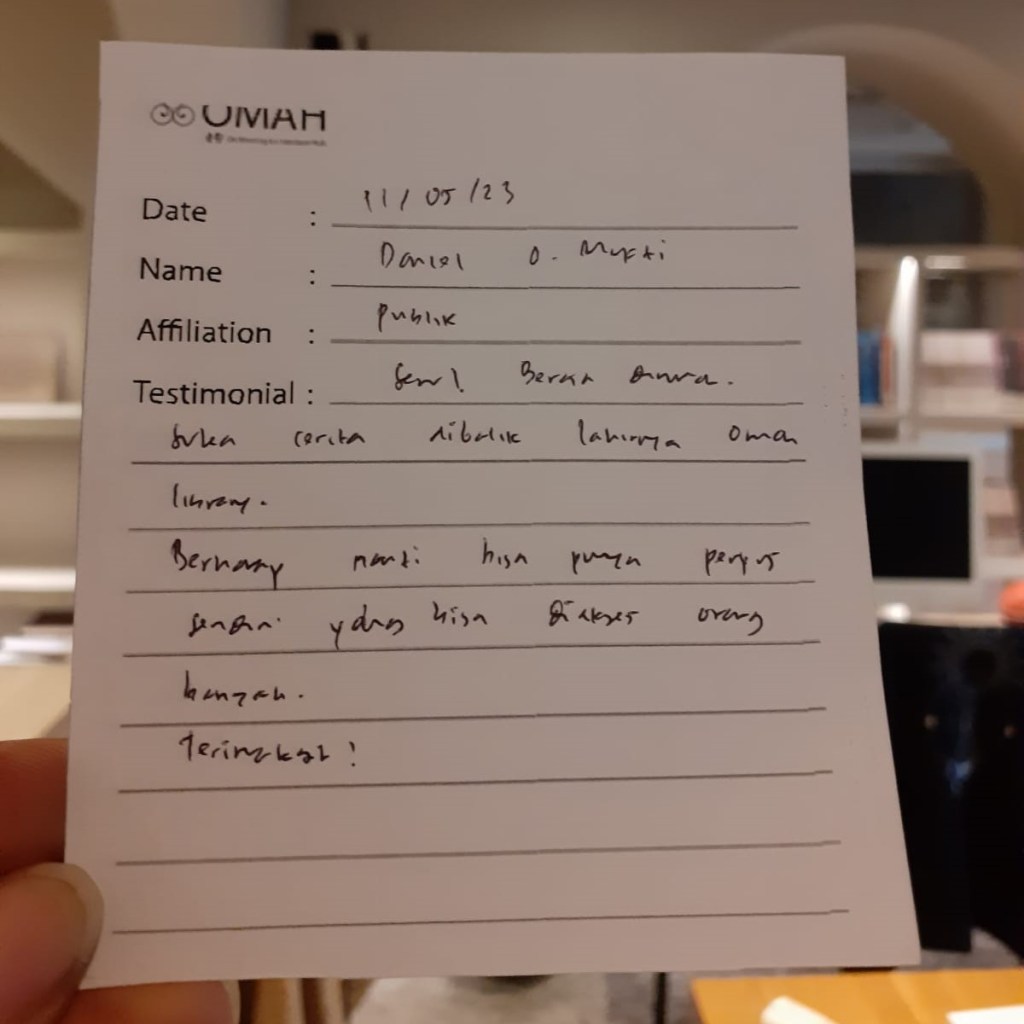 UMAH
Date : 11/05/23
Name : Daniel D. Mukti
Affiliation : Publik
Testimonial : Seru!
Suka cerita dibalik lahirnya Omah
library.
Berharap nanti bisa punya perpus
sendiri ydng bisa diakses orang
banyak.